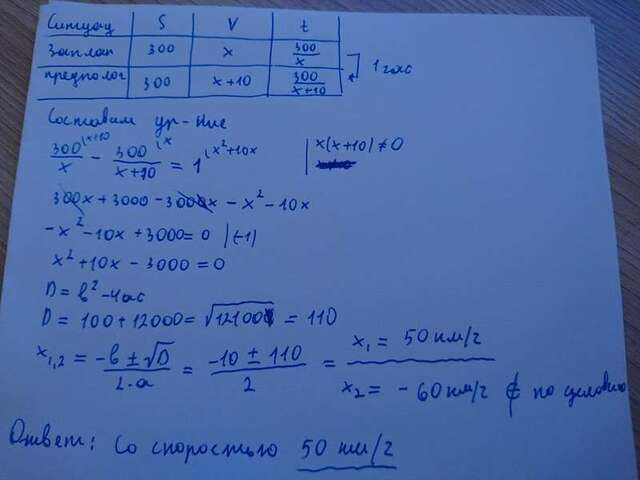 Ситуац S V t
Заплан 300 x 300/x
предполог 300 x+10 300/x+10 1 час
Составим ур-ние
300/x (x+10 - 300/x+10 (x = 1 (x²+10x | x(x+10)≠0
300x + 3000 - 300x - x² - 10x
-x² - 10x + 3000 = 0 |(-1)
x² + 10x - 3000 = 0
D = b² - 4ac
D = 100 + 12000 = √12100 = 110
x₁,₂ = -b ± √D / 2·a = -10 ± 110 / 2 = x₁ = 50 км/г
x₂ = - 60 км/г ∉ по условию
Ответ: Со скоростью 50 км/г